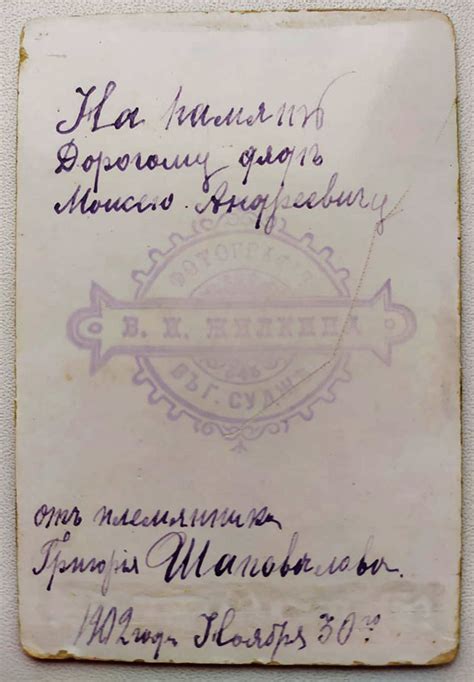 На память
Дорогому дядѣ
Моисею Андреевичу
ФОТОГРАФIЯ
В. И. ЖИЛКИНА
ВЪ Г. СУДЖѢ
отъ племянника
Григорiя Шаповалова.
1902 года Ноября 30го